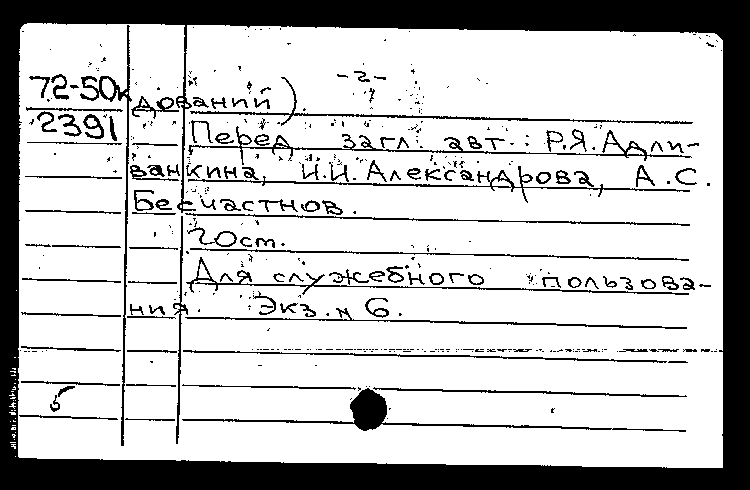 -2-
72-50к дований).
2391 Перед загл. авт.: Р.Я.Адли-
ванкина, И.И.Александрова, А.С.
Бесчастнов.
20 ст.
Для служебного пользова-
ния. Экз. N 6.